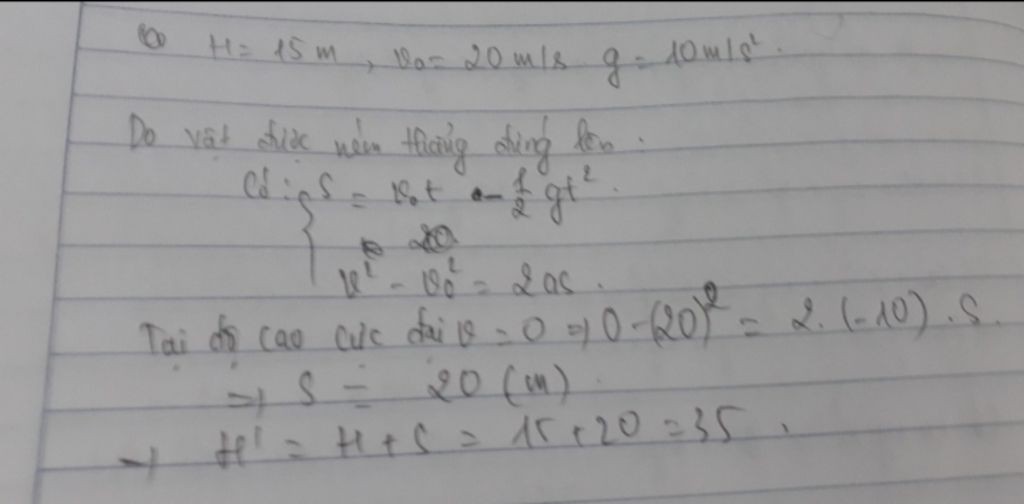 H = 15 m, v₀ = 20 m/s g = 10 m/s².
Do vật được ném thẳng đứng lên :
Có : S = v₀t - 1/2 gt².
v² - v₀² = 2as.
Tại độ cao cực đại v = 0 => 0 - (20)² = 2. (-10) . S.
=> S = 20 (m)
→ H' = H + S = 15 + 20 = 35.